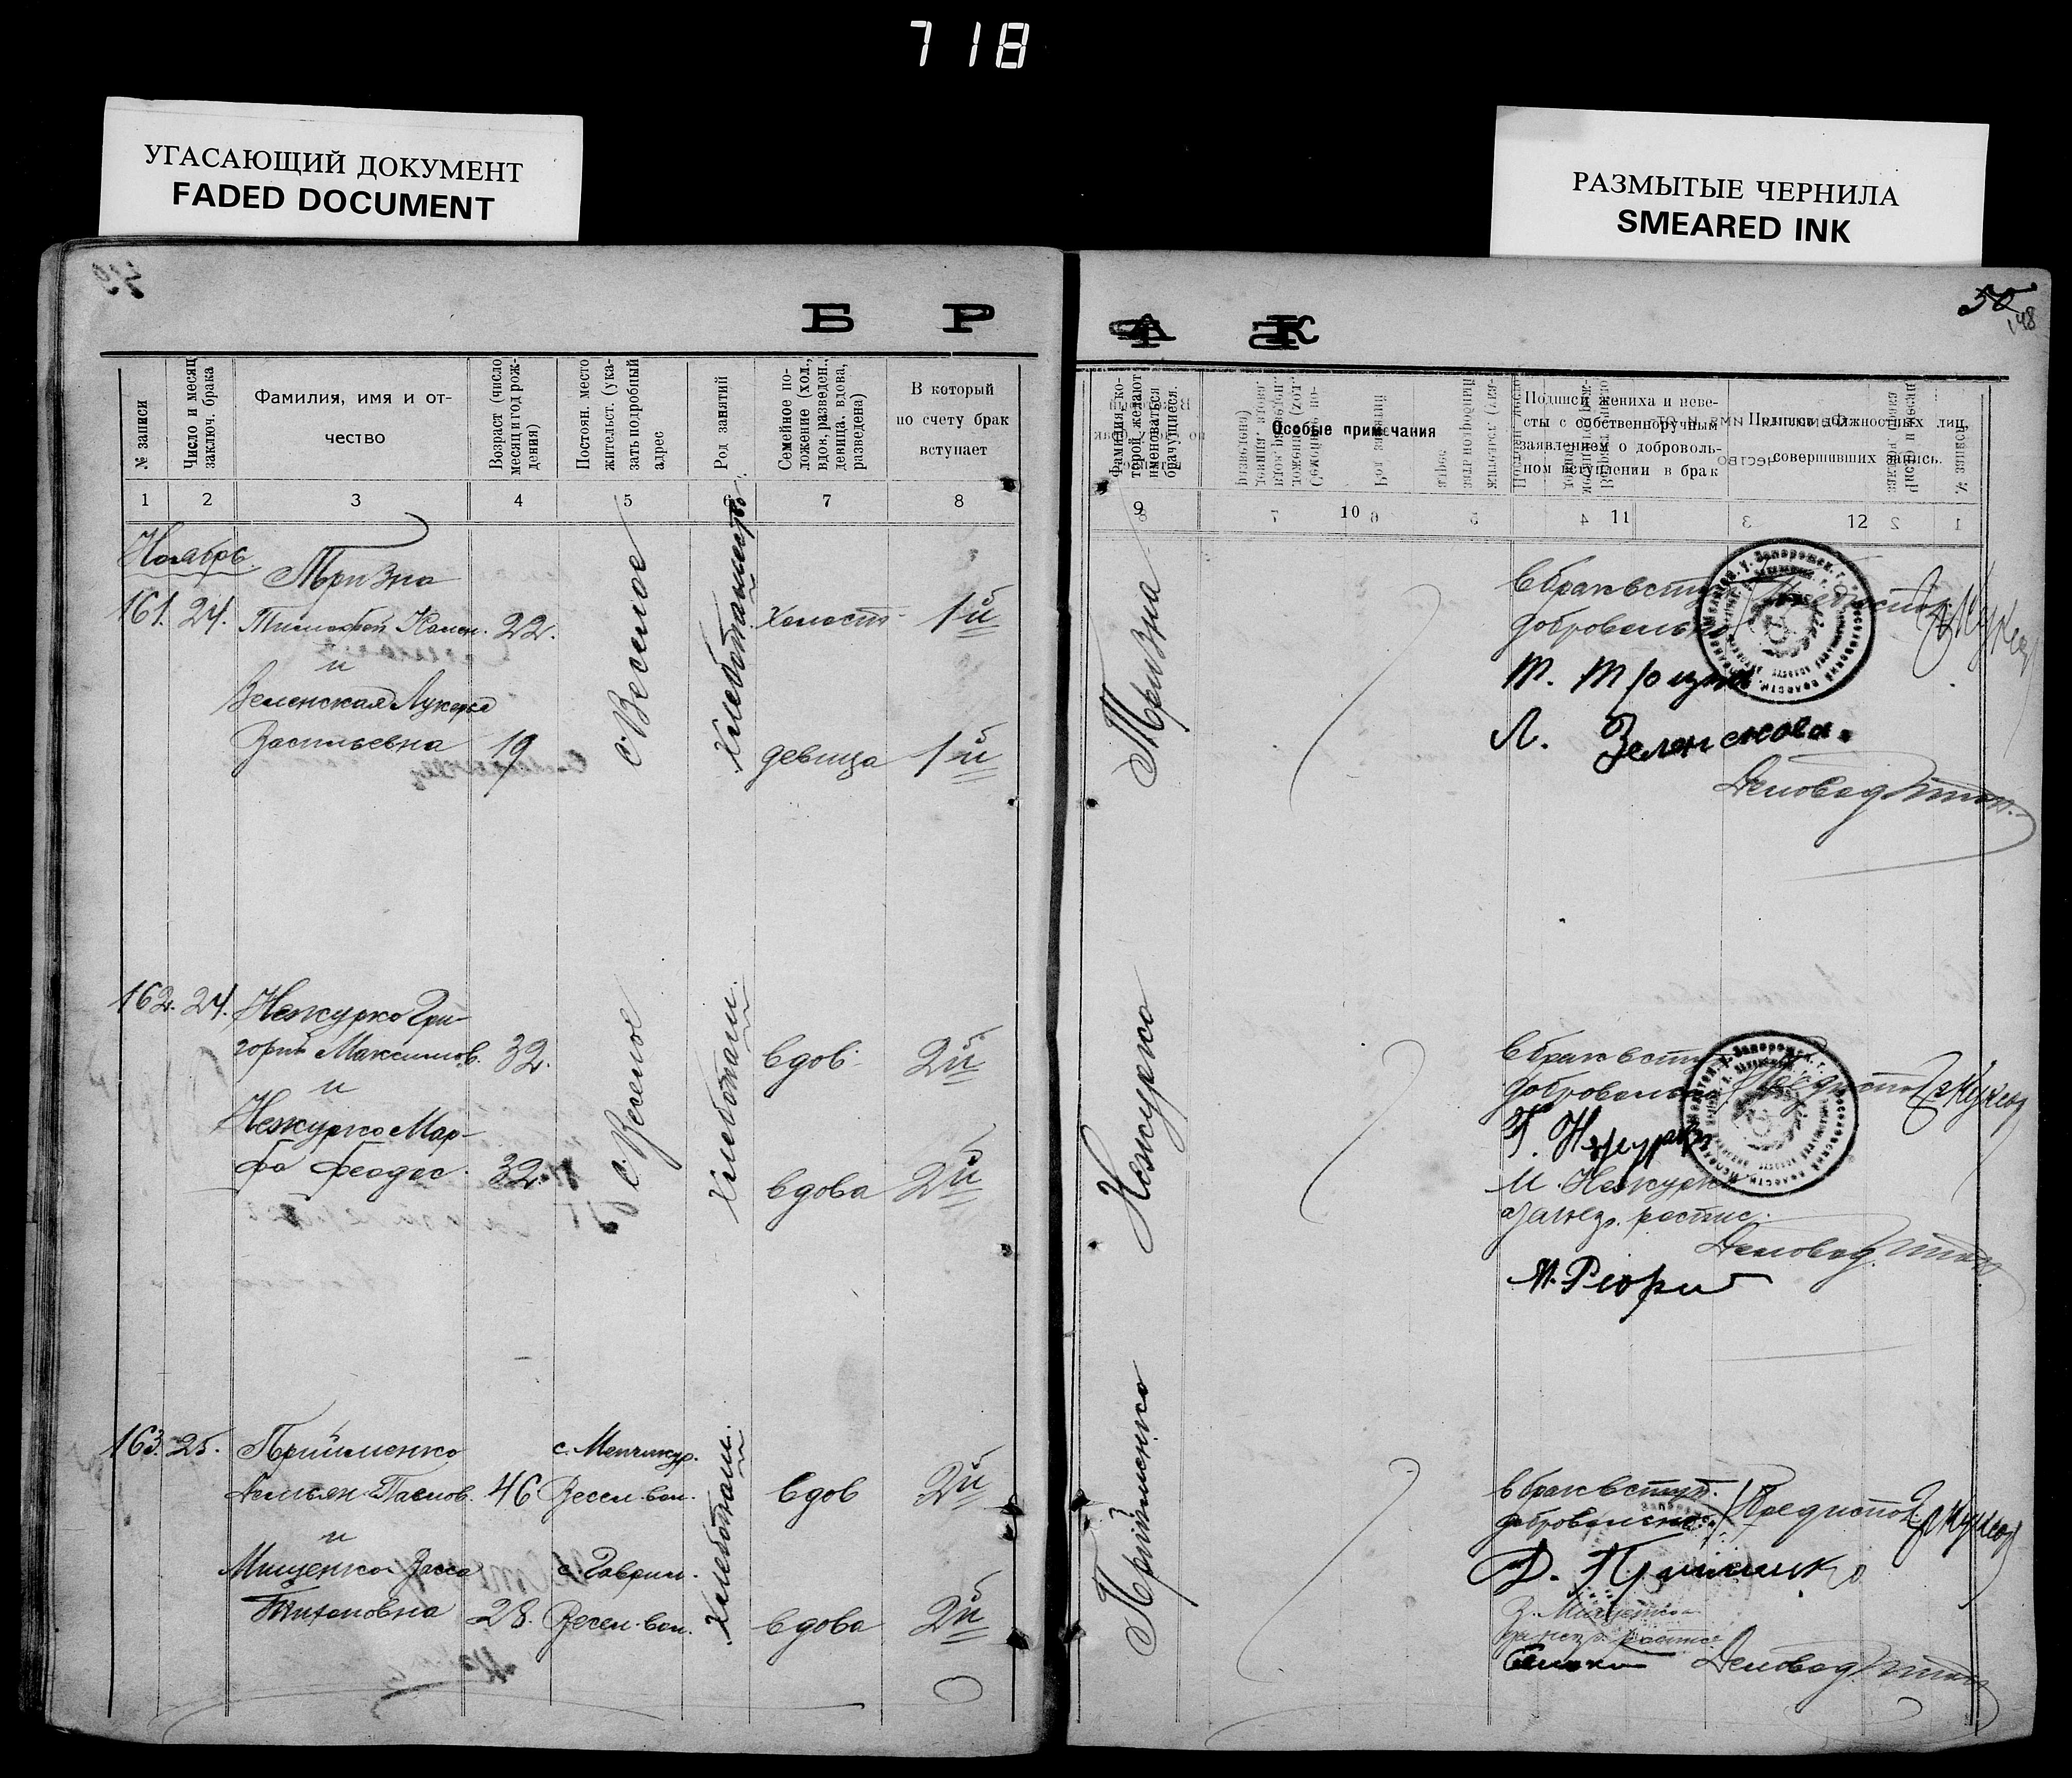 718
УГАСАЮЩИЙ ДОКУМЕНТ
FADED DOCUMENT
РАЗМЫТЫЕ ЧЕРНИЛА
SMEARED INK
50
148
Б Р А К
№ записи
Число и месяц
заключ. брака
Фамилия, имя и от-
чество
Возраст (число
месяц и год рож-
дения)
Постоян. место
жительст. (ука-
зать подробный
адрес
Род занятий
Семейное по-
ложение (хол.,
вдов., разведен.,
девица, вдова,
разведена)
В который
по счету брак
вступает
Фамилия, ко-
торой желают
именоваться
брачущиеся.
Особые примечания
Подписи жениха и неве-
сты с собственноручным
заявлением о доброволь-
ном вступлении в брак
Подписи должностных лиц,
совершивших запись.
1 2 3 4 5 6 7 8 9 10 11 12
Ноябрь
161. 24.
Тризна
Тимофей 22.
и
Зеленская Лукерья
Васильевна 19
с. Веселое
Хлебопашество
холост 1й
девица 1й
Тризна
В брак вступ.
добровольно
Т. Тризна
Л. Зеленскова.
Деловод
162. 24.
Нежурко Гри-
горий Максимов. 32.
и
Нежурко Мар-
фа Феодос. 32.
с. Веселое
Хлебопаш.
вдов. 2й
вдова 2й
Нежурко
В брак вступ
добровольно
Г. Нежурко
М. Нежурко
за негр. роспис.
Деловод.
163. 25.
Прийменко
Демьян Павлов. 46
и
Мищенко Васса
Тихоновна 28.
с. Менчикур.
Весел. вол.
с. Гаврил.
Весел. вол.
Хлебопаш.
вдов 2й
вдова 2й
Прийменко
В брак вступ.
добровольно
В. Мищенко
Деловод.